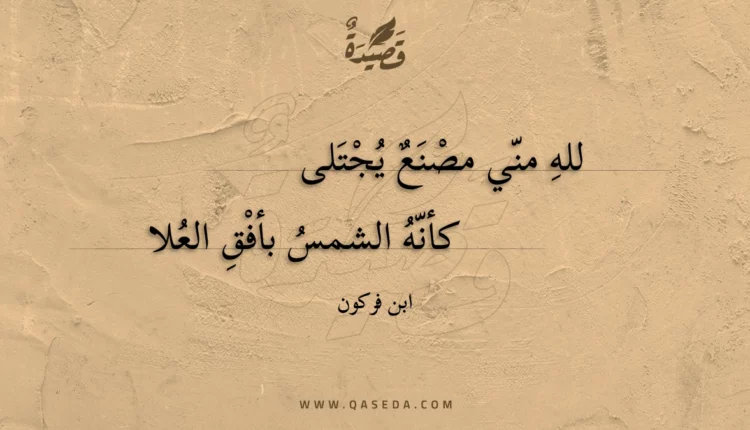 قَصِيدَةٌ
للهِ منّي مصْنَعٌ يُجْتَلى
كأنّهُ الشمسُ بأفْقِ العُلا
ابن فركون
WWW.QASEDA.COM